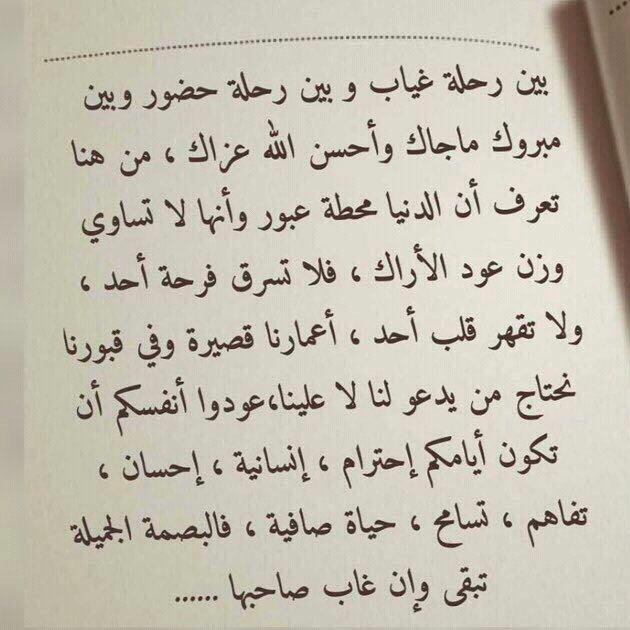 بين رحلة غياب و بين رحلة حضور وبين
مبروك ماجاك وأحسن الله عزاك ، من هنا
تعرف أن الدنيا محطة عبور وأنها لا تساوي
وزن عود الأراك ، فلا تسرق فرحة أحد ،
ولا تقهر قلب أحد ، أعمارنا قصيرة وفي قبورنا
نحتاج من يدعو لنا لا علينا،عودوا أنفسكم أن
تكون أيامكم إحترام ، إنسانية ، إحسان ،
تفاهم ، تسامح ، حياة صافية ، فالبصمة الجميلة
تبقى وإن غاب صاحبها ......